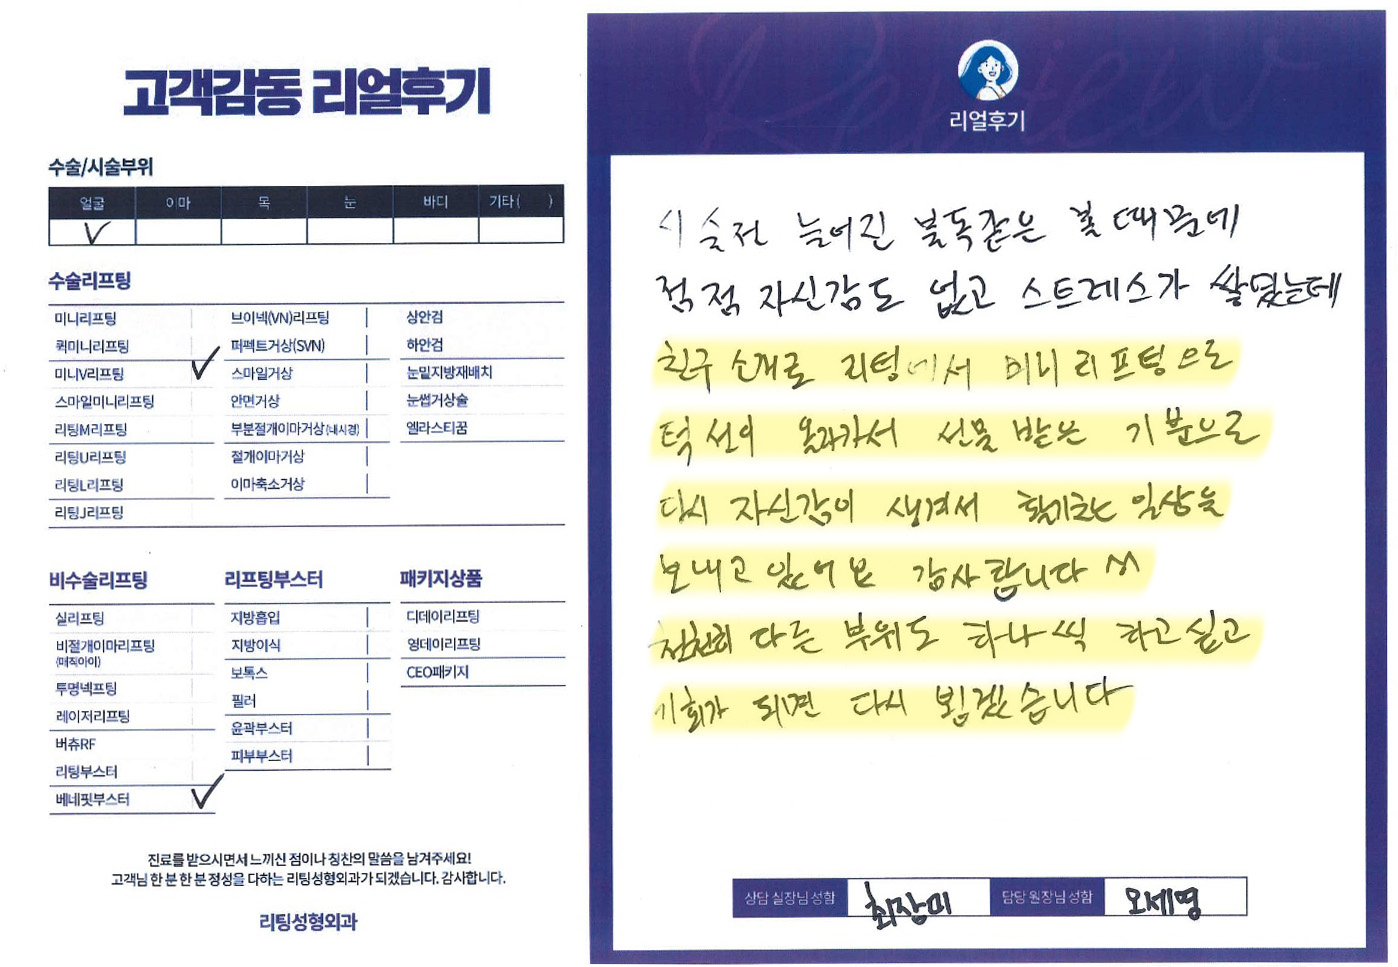 고객감동 리얼후기
수술/시술부위
얼굴 이마 목 눈 바디 기타( )
수술리프팅
미니리프팅
퀵미니리프팅
미니V리프팅
스마일미니리프팅
리팅M리프팅
리팅U리프팅
리팅L리프팅
리팅J리프팅
브이넥(VN)리프팅
퍼펙트거상(SVN)
스마일거상
안면거상
부분절개이마거상(내시경)
절개이마거상
이마축소거상
상안검
하안검
눈밑지방재배치
눈썹거상술
엘라스티꿈
비수술리프팅
실리프팅
비절개이마리프팅
(매직아이)
투명넥프팅
레이저리프팅
버츄RF
리팅부스터
베네핏부스터
리프팅부스터
지방흡입
지방이식
보톡스
필러
윤곽부스터
피부부스터
패키지상품
디데이리프팅
영데이리프팅
CEO패키지
진료를 받으시면서 느끼신 점이나 칭찬의 말씀을 남겨주세요!
고객님 한 분 한 분 정성을 다하는 리팅성형외과가 되겠습니다. 감사합니다.
리팅성형외과
Review
리얼후기
시술전 늘어진 불독같은 볼 때문에
점점 자신감도 없고 스트레스가 쌓였는데
친구 소개로 리팅에서 미니리프팅으로
턱선이 올라가서 선물 받은 기분으로
다시 자신감이 생겨서 활기찬 일상을
보내고 있어요 감사합니다 ^^
천천히 다른 부위도 하나씩 하고싶고
기회가 되면 다시 뵙겠습니다
상담 실장님 성함 최장미 담당 원장님 성함 오세명